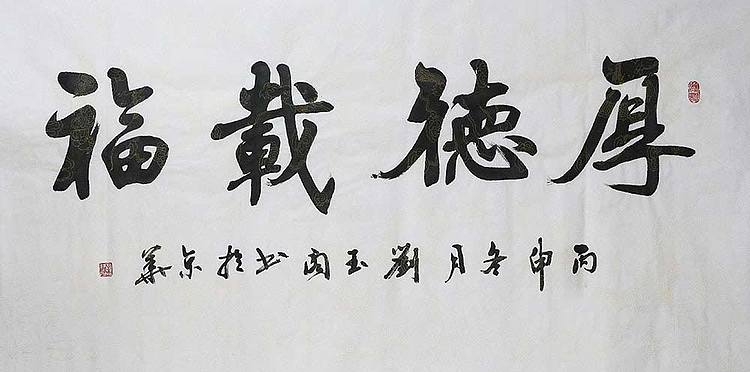 厚德載福
丙申冬月劉玉閣书於京華